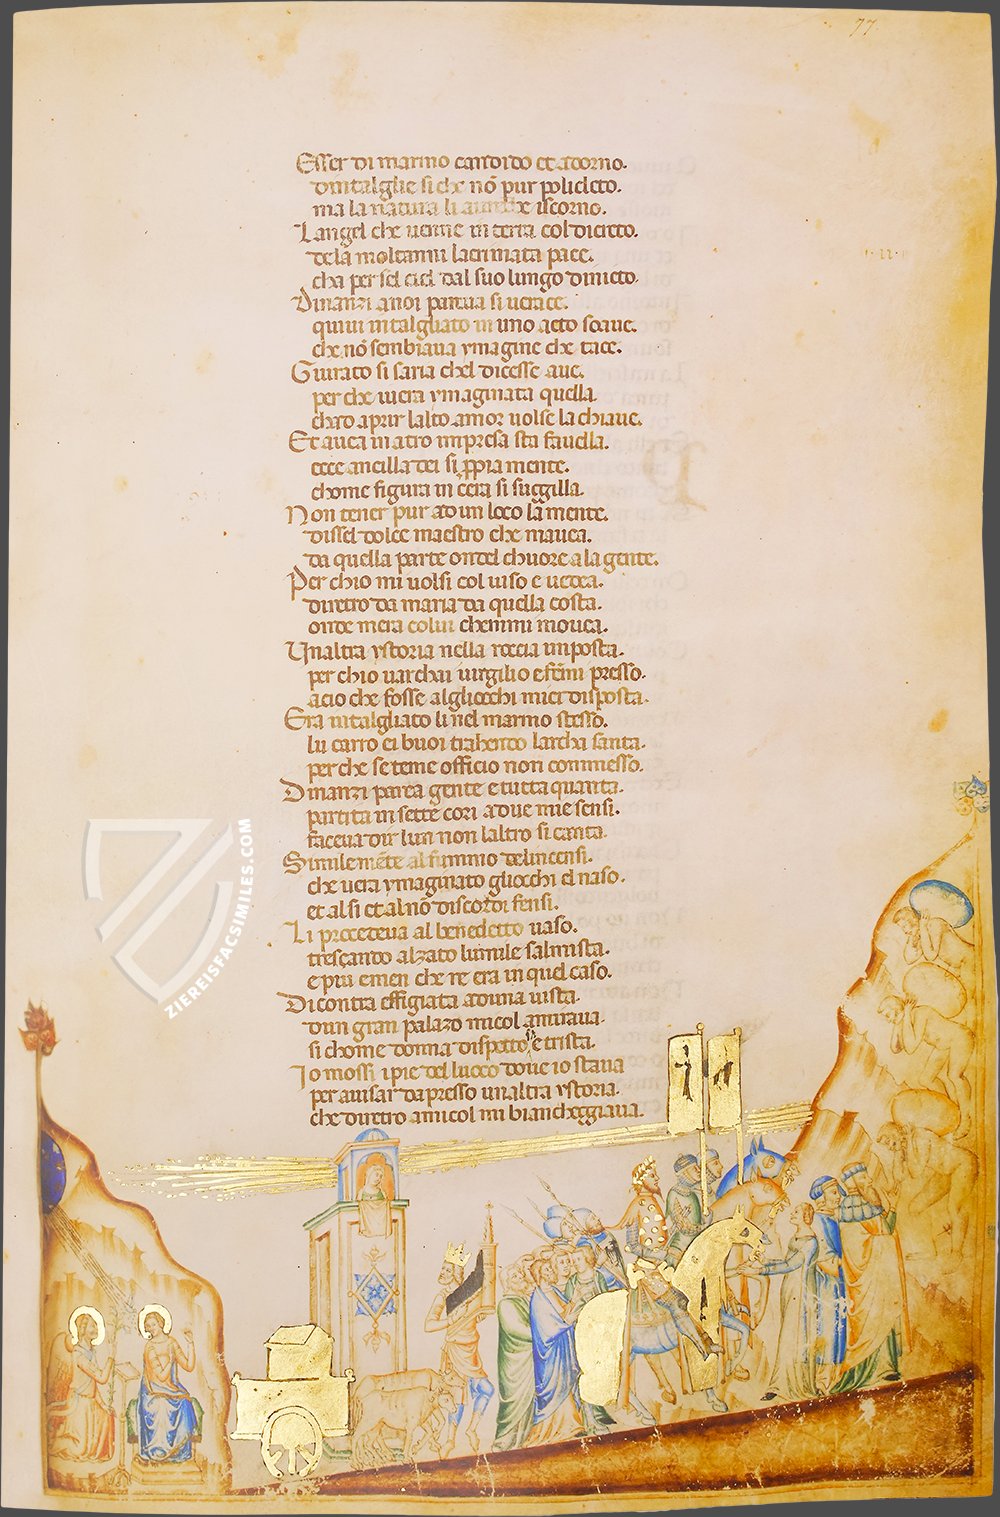 77
Esser di marmo candido et adorno.
dintalglie si che nõ pur policleto.
ma la natura li aurebbe iscorno.
Langel che uenne in terra col dicreto.
dela moltanni lacrimata pace.
cha per sel ciel dal suo lungo diuieto.
Dinanzi anoi pareua si uerace.
quiui intalgliato in uno acto soaue.
che nõ sembiaua ymagine che tace.
Giurato si saria chel dicesse aue.
per che iuera ymaginata quella.
chad aprir lalto amor uolse la chiaue.
Et auea in atto impresa sta fauella.
ecce ancilla dei si ppria mente.
chome figura in cera si suggilla.
Non tener pur ad un loco la mente.
dissel dolce maestro che mauea.
da quella parte ondel chuore a la gente.
Per chio mi uolsi col uiso e uedea.
dirietro da maria da quella costa.
onde mera colui chemmi mouea.
Unaltra ystoria nella roccia imposta.
per chio uarchai uirgilio e femi presso.
acio che fosse algliocchi miei disposta.
Era intalgliato li nel marmo stesso.
lu carro ei buoi trahendo larcha santa.
per che se teme officio non commesso.
Dinanzi parea gente e tutta quanta.
partita in sette cori adue mie sensi.
faceua dir lun non laltro si canta.
Similemẽte al fummo delincensi.
che uera ymaginato gliocchi el naso.
et al si et al nõ discordi fensi.
Li precedeua al benedetto uaso.
trescando alzato lumile salmista.
e piu emen che re era in quel caso.
Dicontra effigiata aduna uista.
dun gran palazo micol amiraua.
si chome donna dispettosa e trista.
Io mossi i pie del luoco doue io staua
per auisar da presso unaltra ystoria.
che dirietro amicol mi biancheggiaua.
ZIEREISFACSIMILES.COM